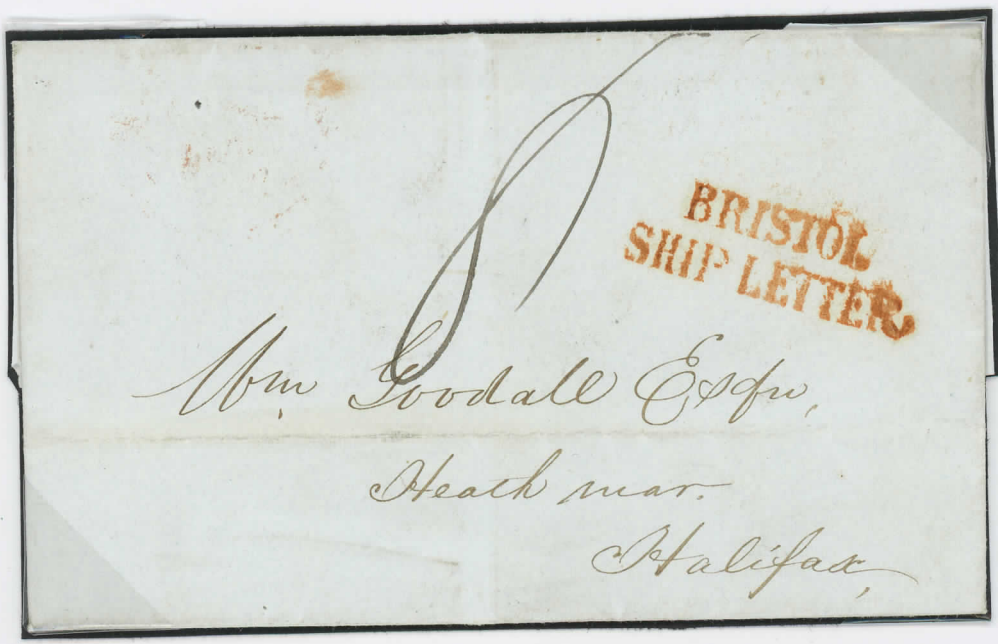 8
BRISTOL
SHIP LETTER
Wm Goodall Esqre,
Heath near.
Halifax,